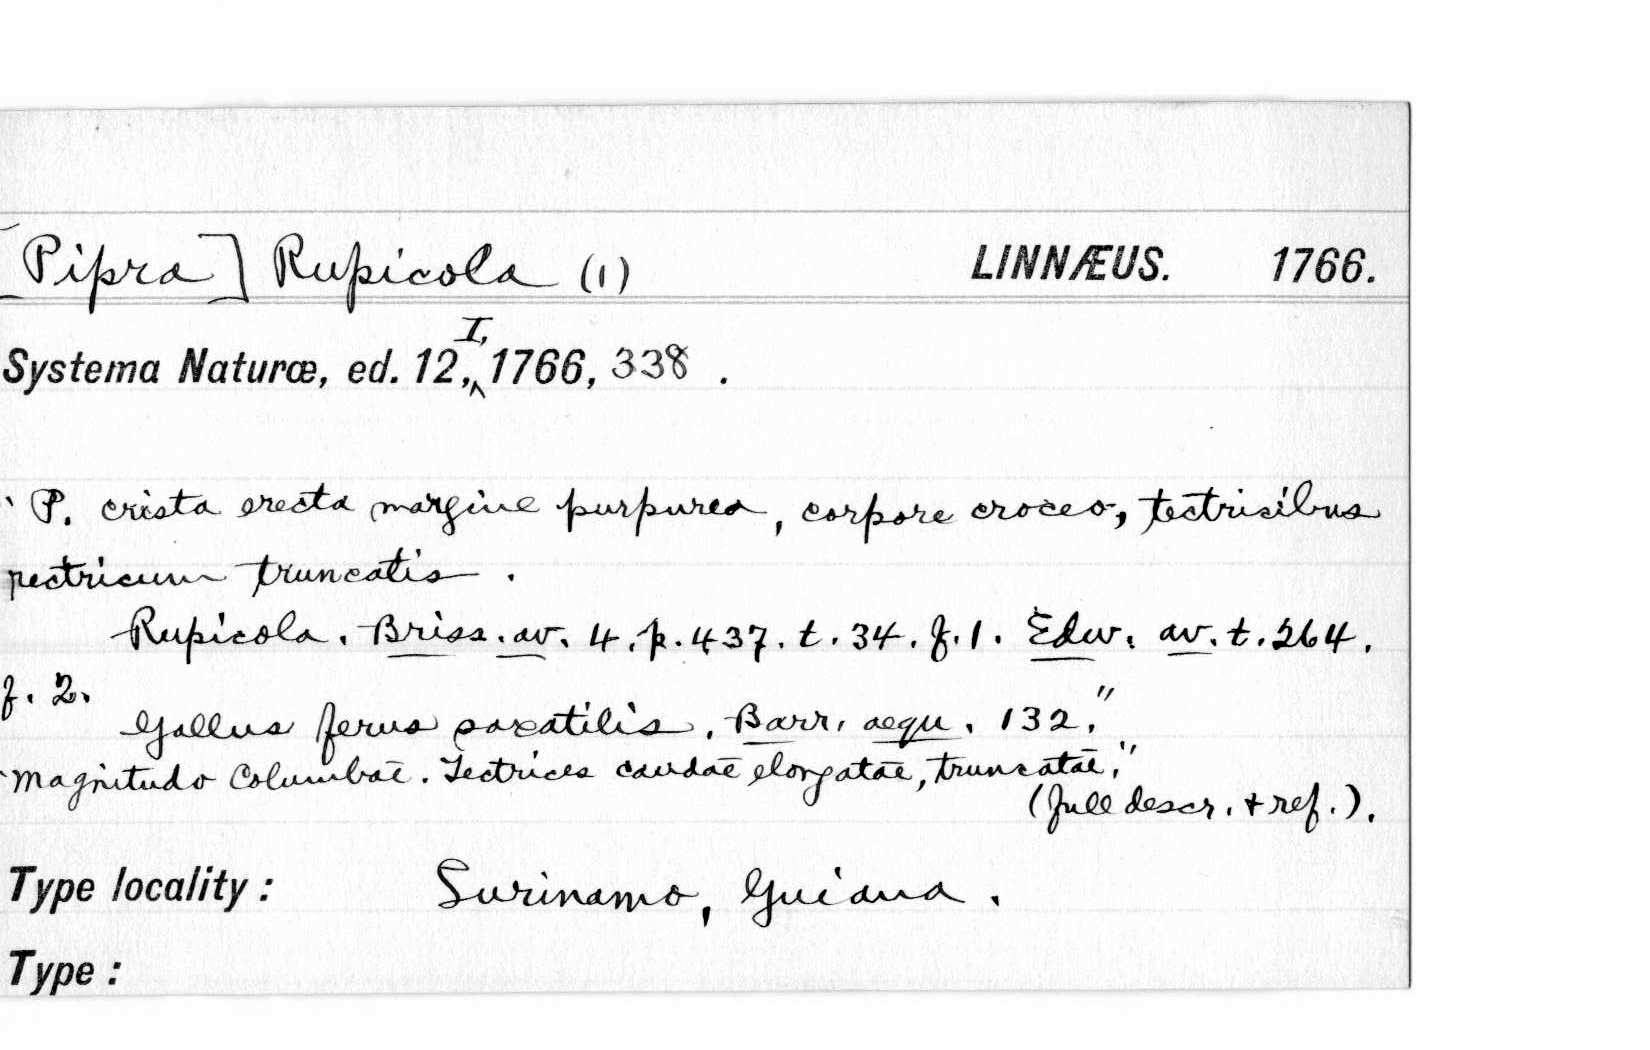 [Pipra] Rupicola (1) LINNÆUS. 1766.
Systema Naturæ, ed. 12, I, 1766, 338 .
" P. crista erecta margine purpurea, corpore croceo, tectricibus
rectricum truncatis .
Rupicola. Briss. av. 4. p. 437. t. 34. f. 1. Edw. av. t. 264.
f. 2.
Gallus ferus saxatilis. Barr. aequ. 132."
"Magnitudo Columbae. Tectrices caudae elongatae, truncatae."
(full descr. + ref.).
Type locality : Surinamo, Guiana .
Type :